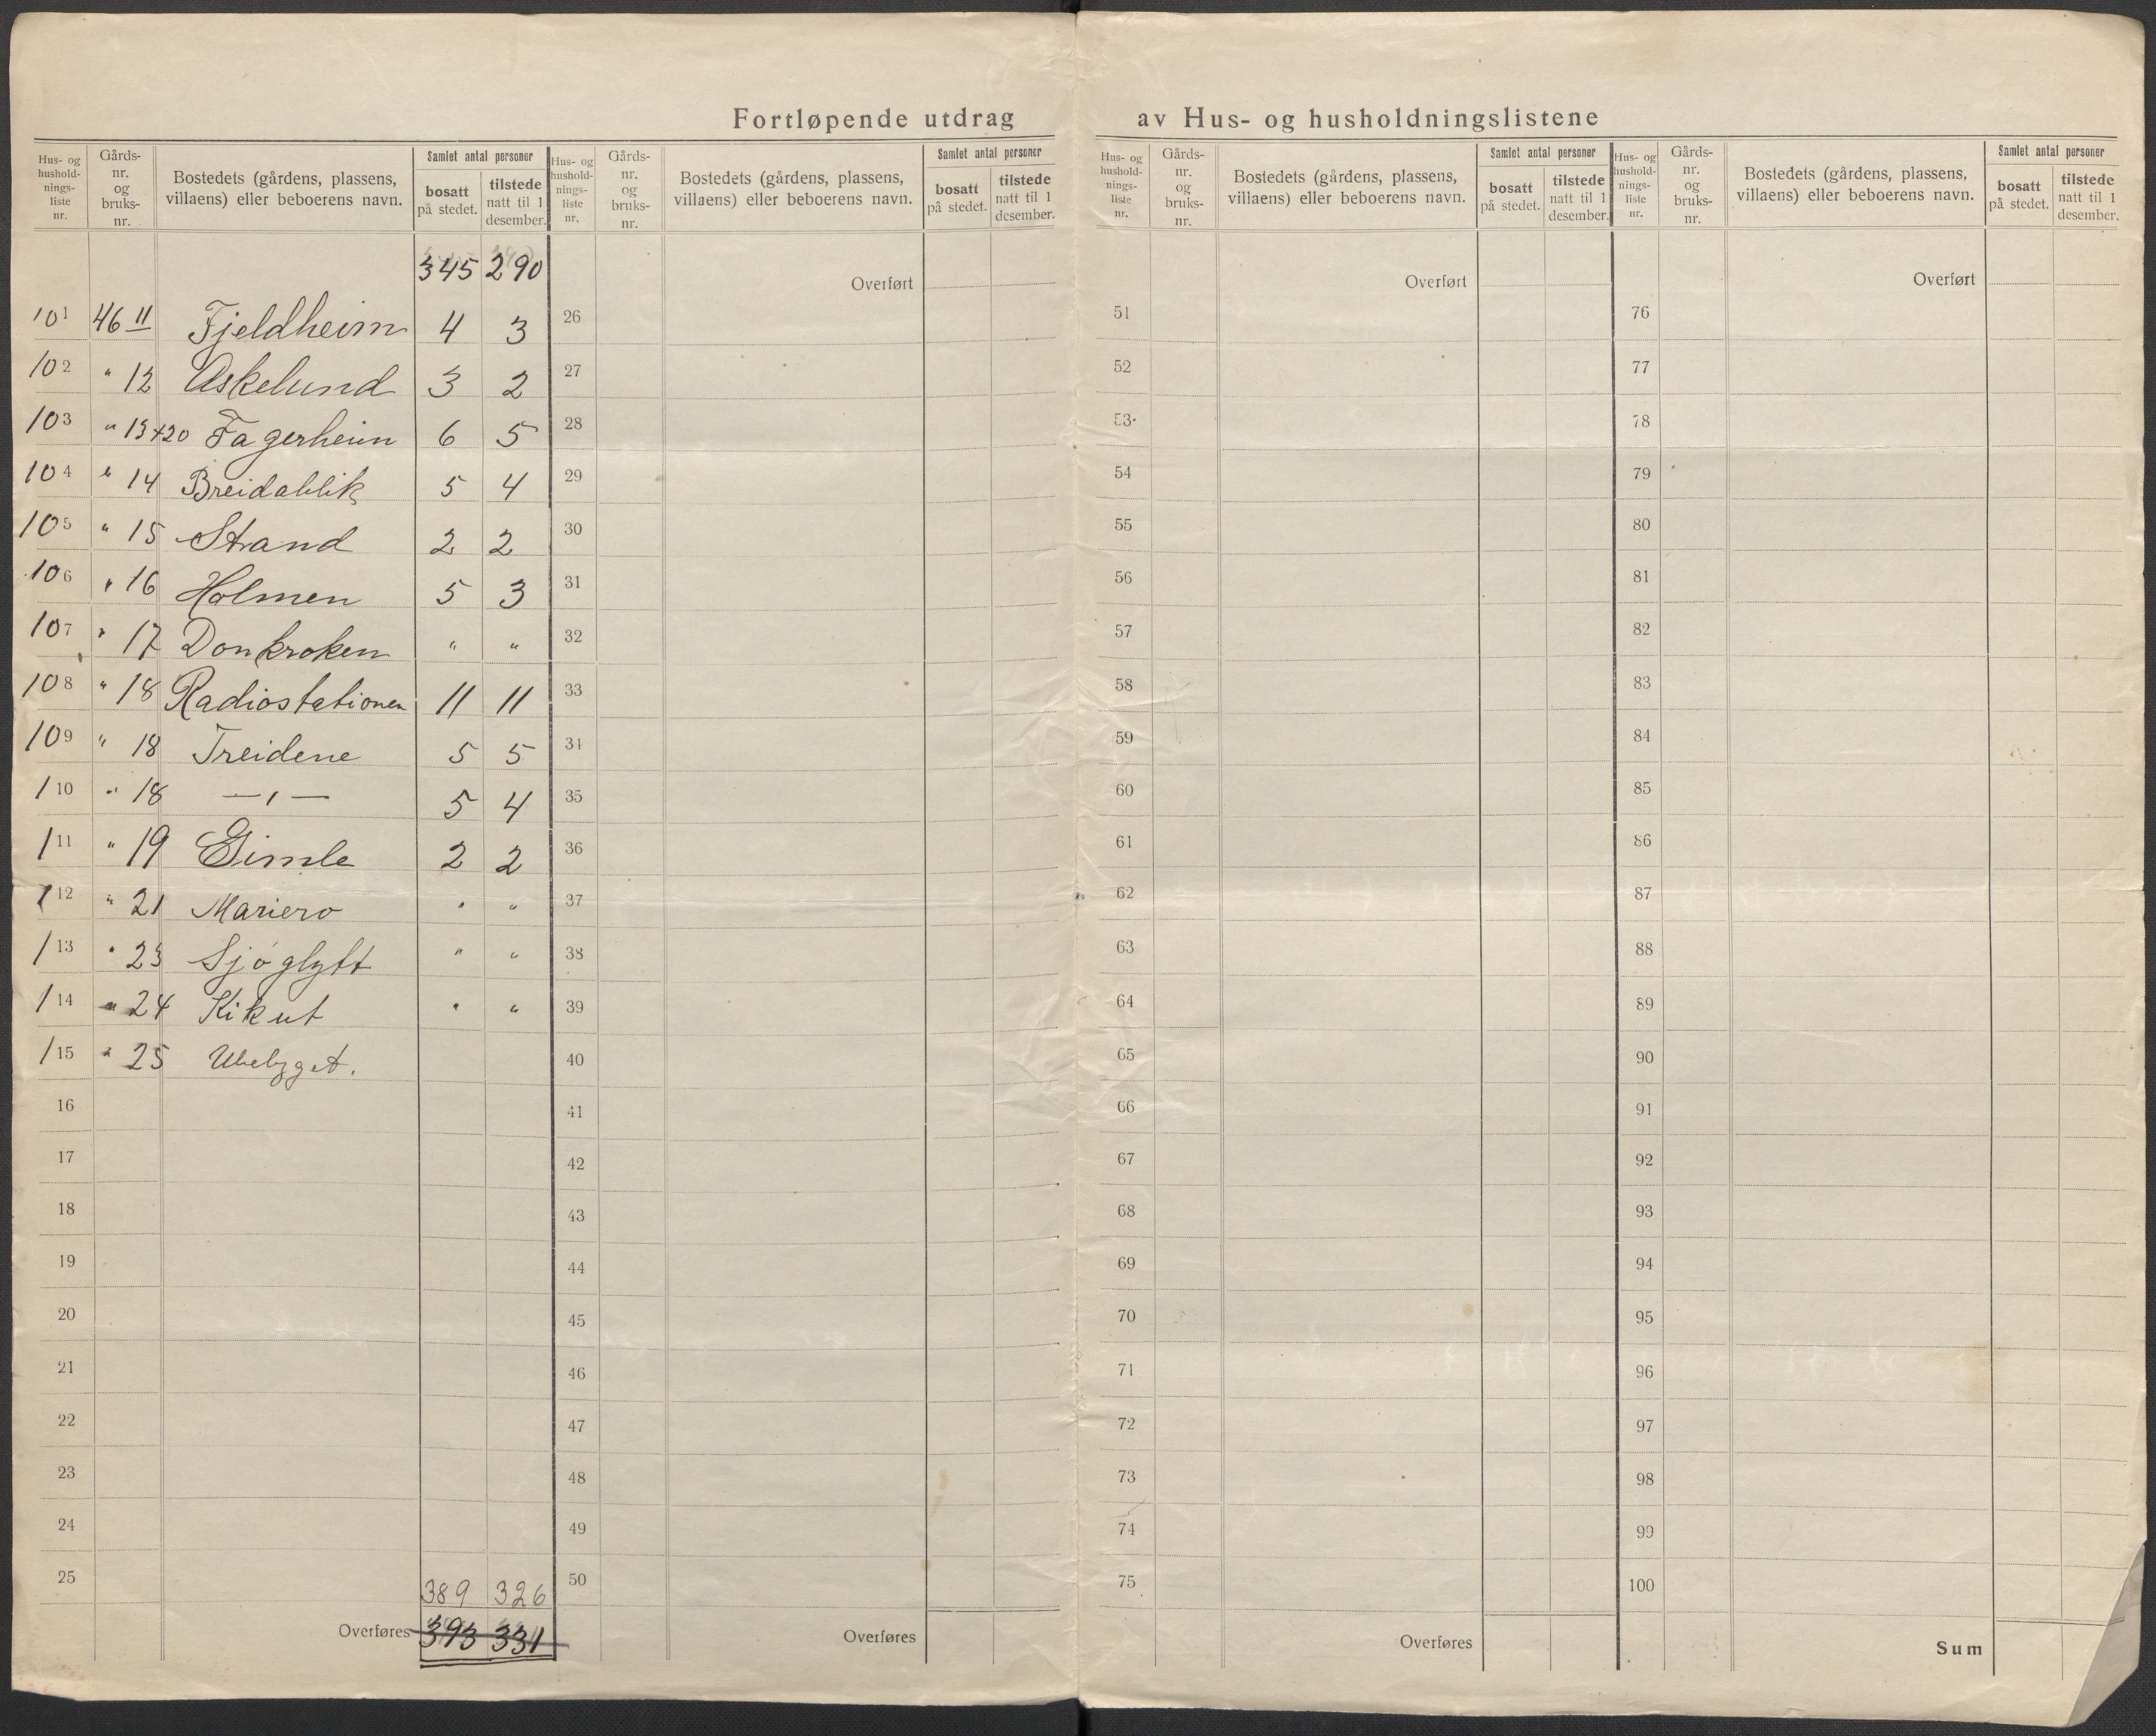 Fortløpende utdrag av Hus- og husholdningslistene
Hus- og hushold- nings- liste nr. | Gårds- nr. og bruks- nr. | Bostedets (gårdens, plassens, villaens) eller beboerens navn. | Samlet antal personer | bosatt på stedet. | tilstede natt til 1 desember.
345 290
101 46 11 Fjeldheim 4 3
102 " 12 Askelund 3 2
103 " 13+20 Fagerheim 6 5
104 " 14 Breidablik 5 4
105 " 15 Strand 2 2
106 " 16 Holmen 5 3
107 " 17 Donkroken " "
108 " 18 Radiostationen 11 11
109 " 18 Treidene 5 5
110 " 18 —"— 5 4
111 " 19 Gimle 2 2
112 " 21 Mariero " "
113 " 23 Sjøglytt " "
114 " 24 Kikut " "
115 " 25 Ubebygget.
16
17
18
19
20
21
22
23
24
25
389 326
Overføres 393 331
Hus- og hushold- nings- liste nr. | Gårds- nr. og bruks- nr. | Bostedets (gårdens, plassens, villaens) eller beboerens navn. | Samlet antal personer | bosatt på stedet. | tilstede natt til 1 desember.
Overført
26
27
28
29
30
31
32
33
34
35
36
37
38
39
40
41
42
43
44
45
46
47
48
49
50
Overføres
Hus- og hushold- nings- liste nr. | Gårds- nr. og bruks- nr. | Bostedets (gårdens, plassens, villaens) eller beboerens navn. | Samlet antal personer | bosatt på stedet. | tilstede natt til 1 desember.
Overført
51
52
53
54
55
56
57
58
59
60
61
62
63
64
65
66
67
68
69
70
71
72
73
74
75
Overføres
Hus- og hushold- nings- liste nr. | Gårds- nr. og bruks- nr. | Bostedets (gårdens, plassens, villaens) eller beboerens navn. | Samlet antal personer | bosatt på stedet. | tilstede natt til 1 desember.
Overført
76
77
78
79
80
81
82
83
84
85
86
87
88
89
90
91
92
93
94
95
96
97
98
99
100
Sum